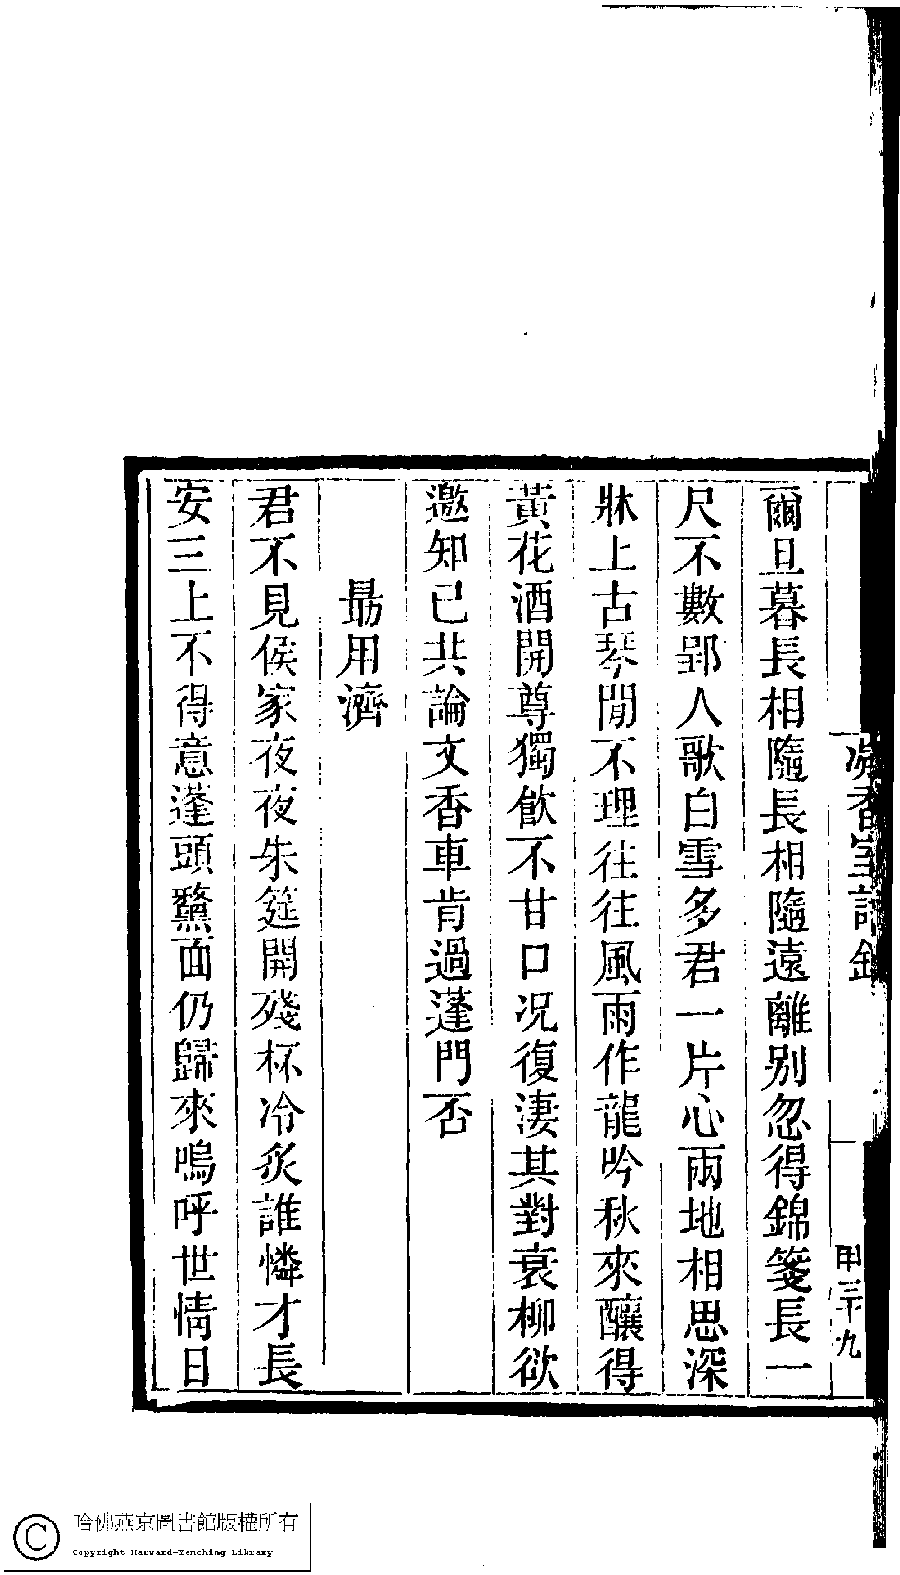 爾旦暮長相隨長相隨遠離别忽得錦箋長一
尺不數郢人歌白雪多君一片心兩地相思深
牀上古琴閒不理往往風雨作龍吟秋來釀得
黃花酒開尊獨飲不甘口况復淒其對衰柳欲
邀知己共論文香車肯過蓬門否
勗用濟
君不見侯家夜夜朱筵開殘杯冷炙誰憐才長
安三上不得意蓬頭黧面仍歸來嗚呼世情日
凝香室詩鈔
甲三十九
哈佛燕京圖書館版權所有
Copyright Harvard-Yenching Library